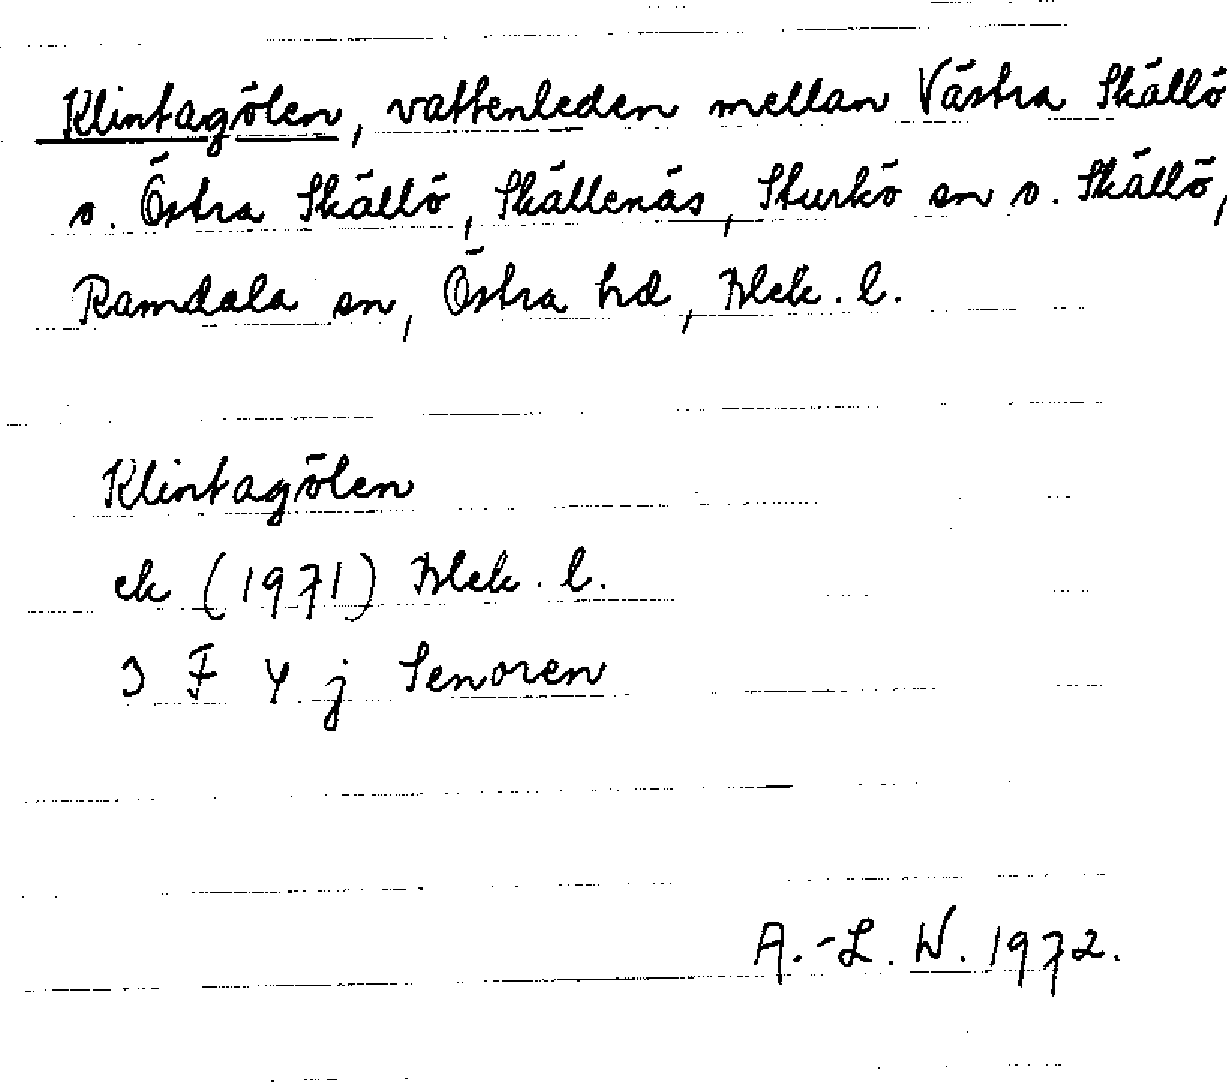 Klintagölen, vattenleden mellan Västra Skällö
o. Östra Skällö, Skällenäs, Sturkö sn o. Skällö,
Ramdala sn, Östra hd, Blek. l.
Klintagölen
ek (1971) Blek. l.
3 F 4 j Senoren
A.-L. W. 1972.